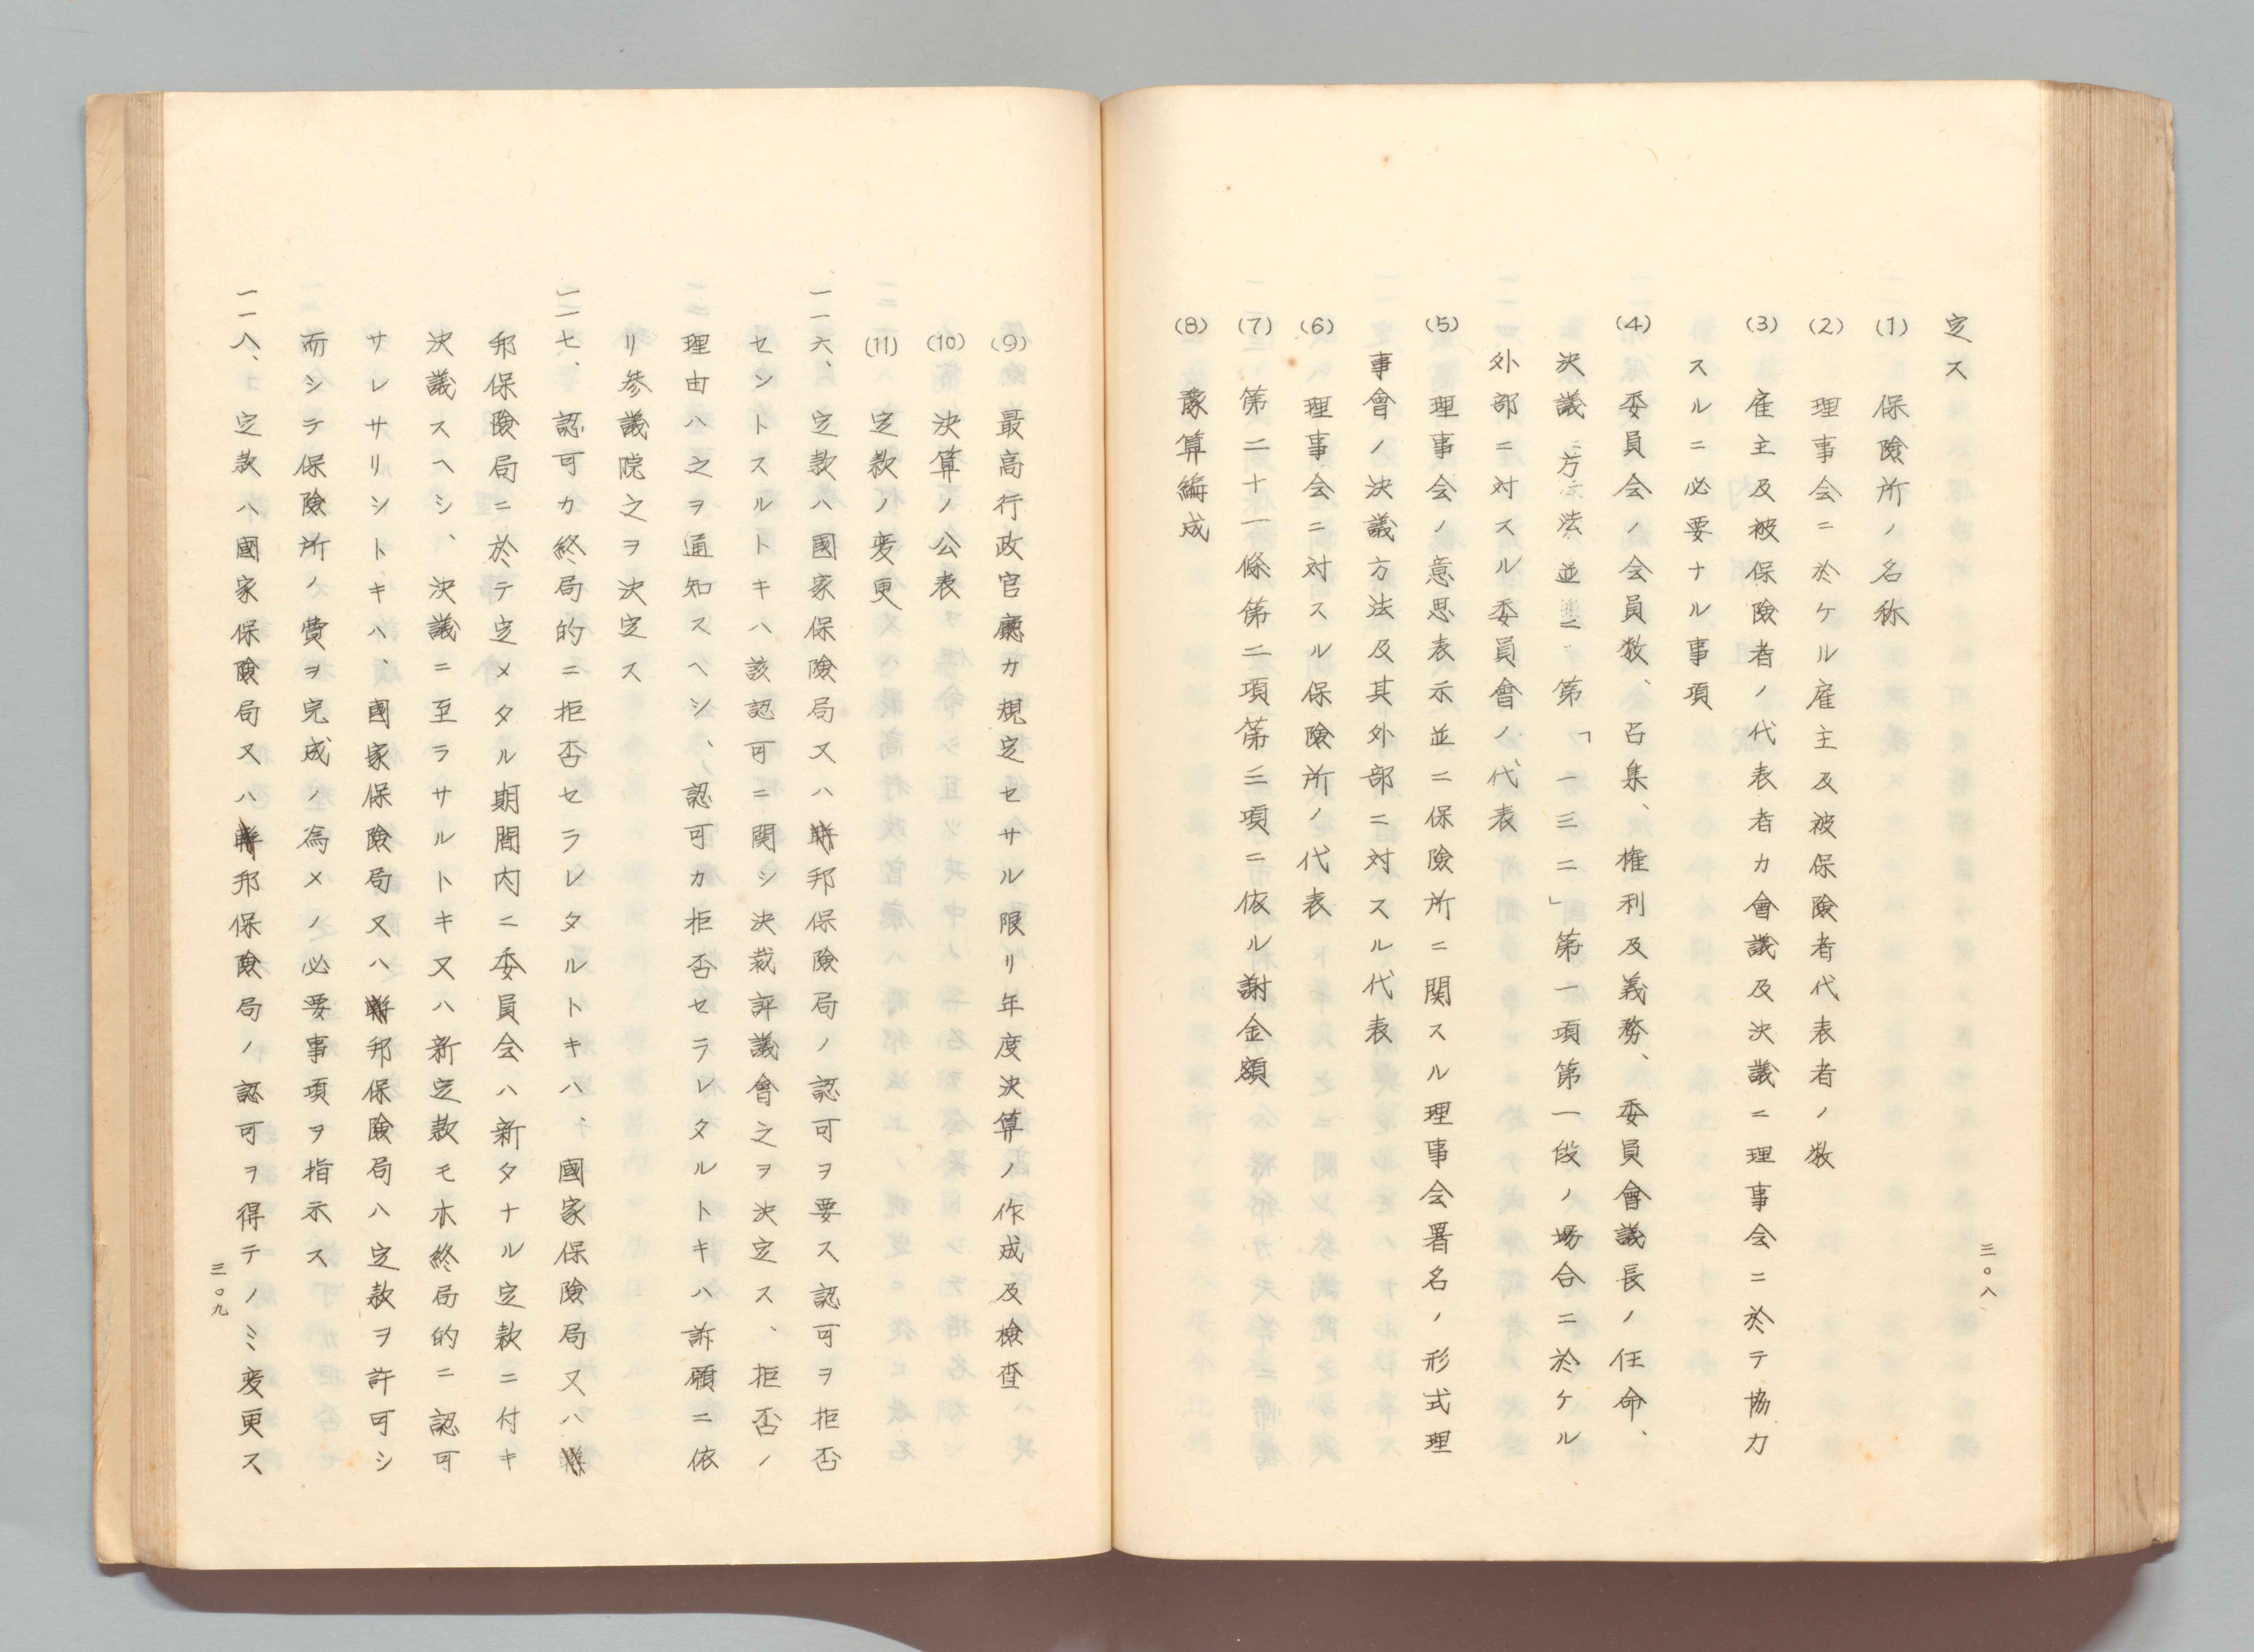 定ス
(1) 保險所ノ名称
(2) 理事会ニ於ケル雇主及被保険者代表者ノ数
(3) 雇主及被保険者ノ代表者カ會議及決議ニ理事会ニ於テ協力
スルニ必要ナル事項
(4) 委員会ノ会員数、召集、権利及義務、委員會議長ノ任命、
決議方法並ニ第「一三二」第一項第一段ノ場合ニ於ケル
外部ニ対スル委員會ノ代表
(5) 理事会ノ意思表示並ニ保險所ニ関スル理事会署名ノ形式理
事會ノ決議方法及其外部ニ対スル代表
(6) 理事会ニ対スル保險所ノ代表
(7) 第二十一條第二項第三項ニ依ル謝金額
(8) 豫算編成
三〇八
(9) 最高行政官廳カ規定セサル限リ年度決算ノ作成及檢査
(10) 決算ノ公表
(11) 定款ノ変更
一一六、定款ハ國家保險局又ハ聯邦保險局ノ認可ヲ要ス認可ヲ拒否
セントスルトキハ該認可ニ関シ決裁評議會之ヲ決定ス、拒否ノ
理由ハ之ヲ通知スヘシ、認可カ拒否セラレタルトキハ訴願ニ依
リ參議院之ヲ決定ス
一一七、認可カ終局的ニ拒否セラレタルトキハ、國家保險局又ハ聯
邦保險局ニ於テ定メタル期間内ニ委員会ハ新タナル定款ニ付キ
決議スヘシ、決議ニ至ラサルトキ又ハ新定款モ亦終局的ニ認可
サレサリシトキハ、國家保險局又ハ聯邦保險局ハ定款ヲ許可シ
而シテ保險所ノ費ヲ完成ノ為メノ必要事項ヲ指示ス
一一八、定款ハ國家保險局又ハ聯邦保險局ノ認可ヲ得テノミ変更ス
三〇九